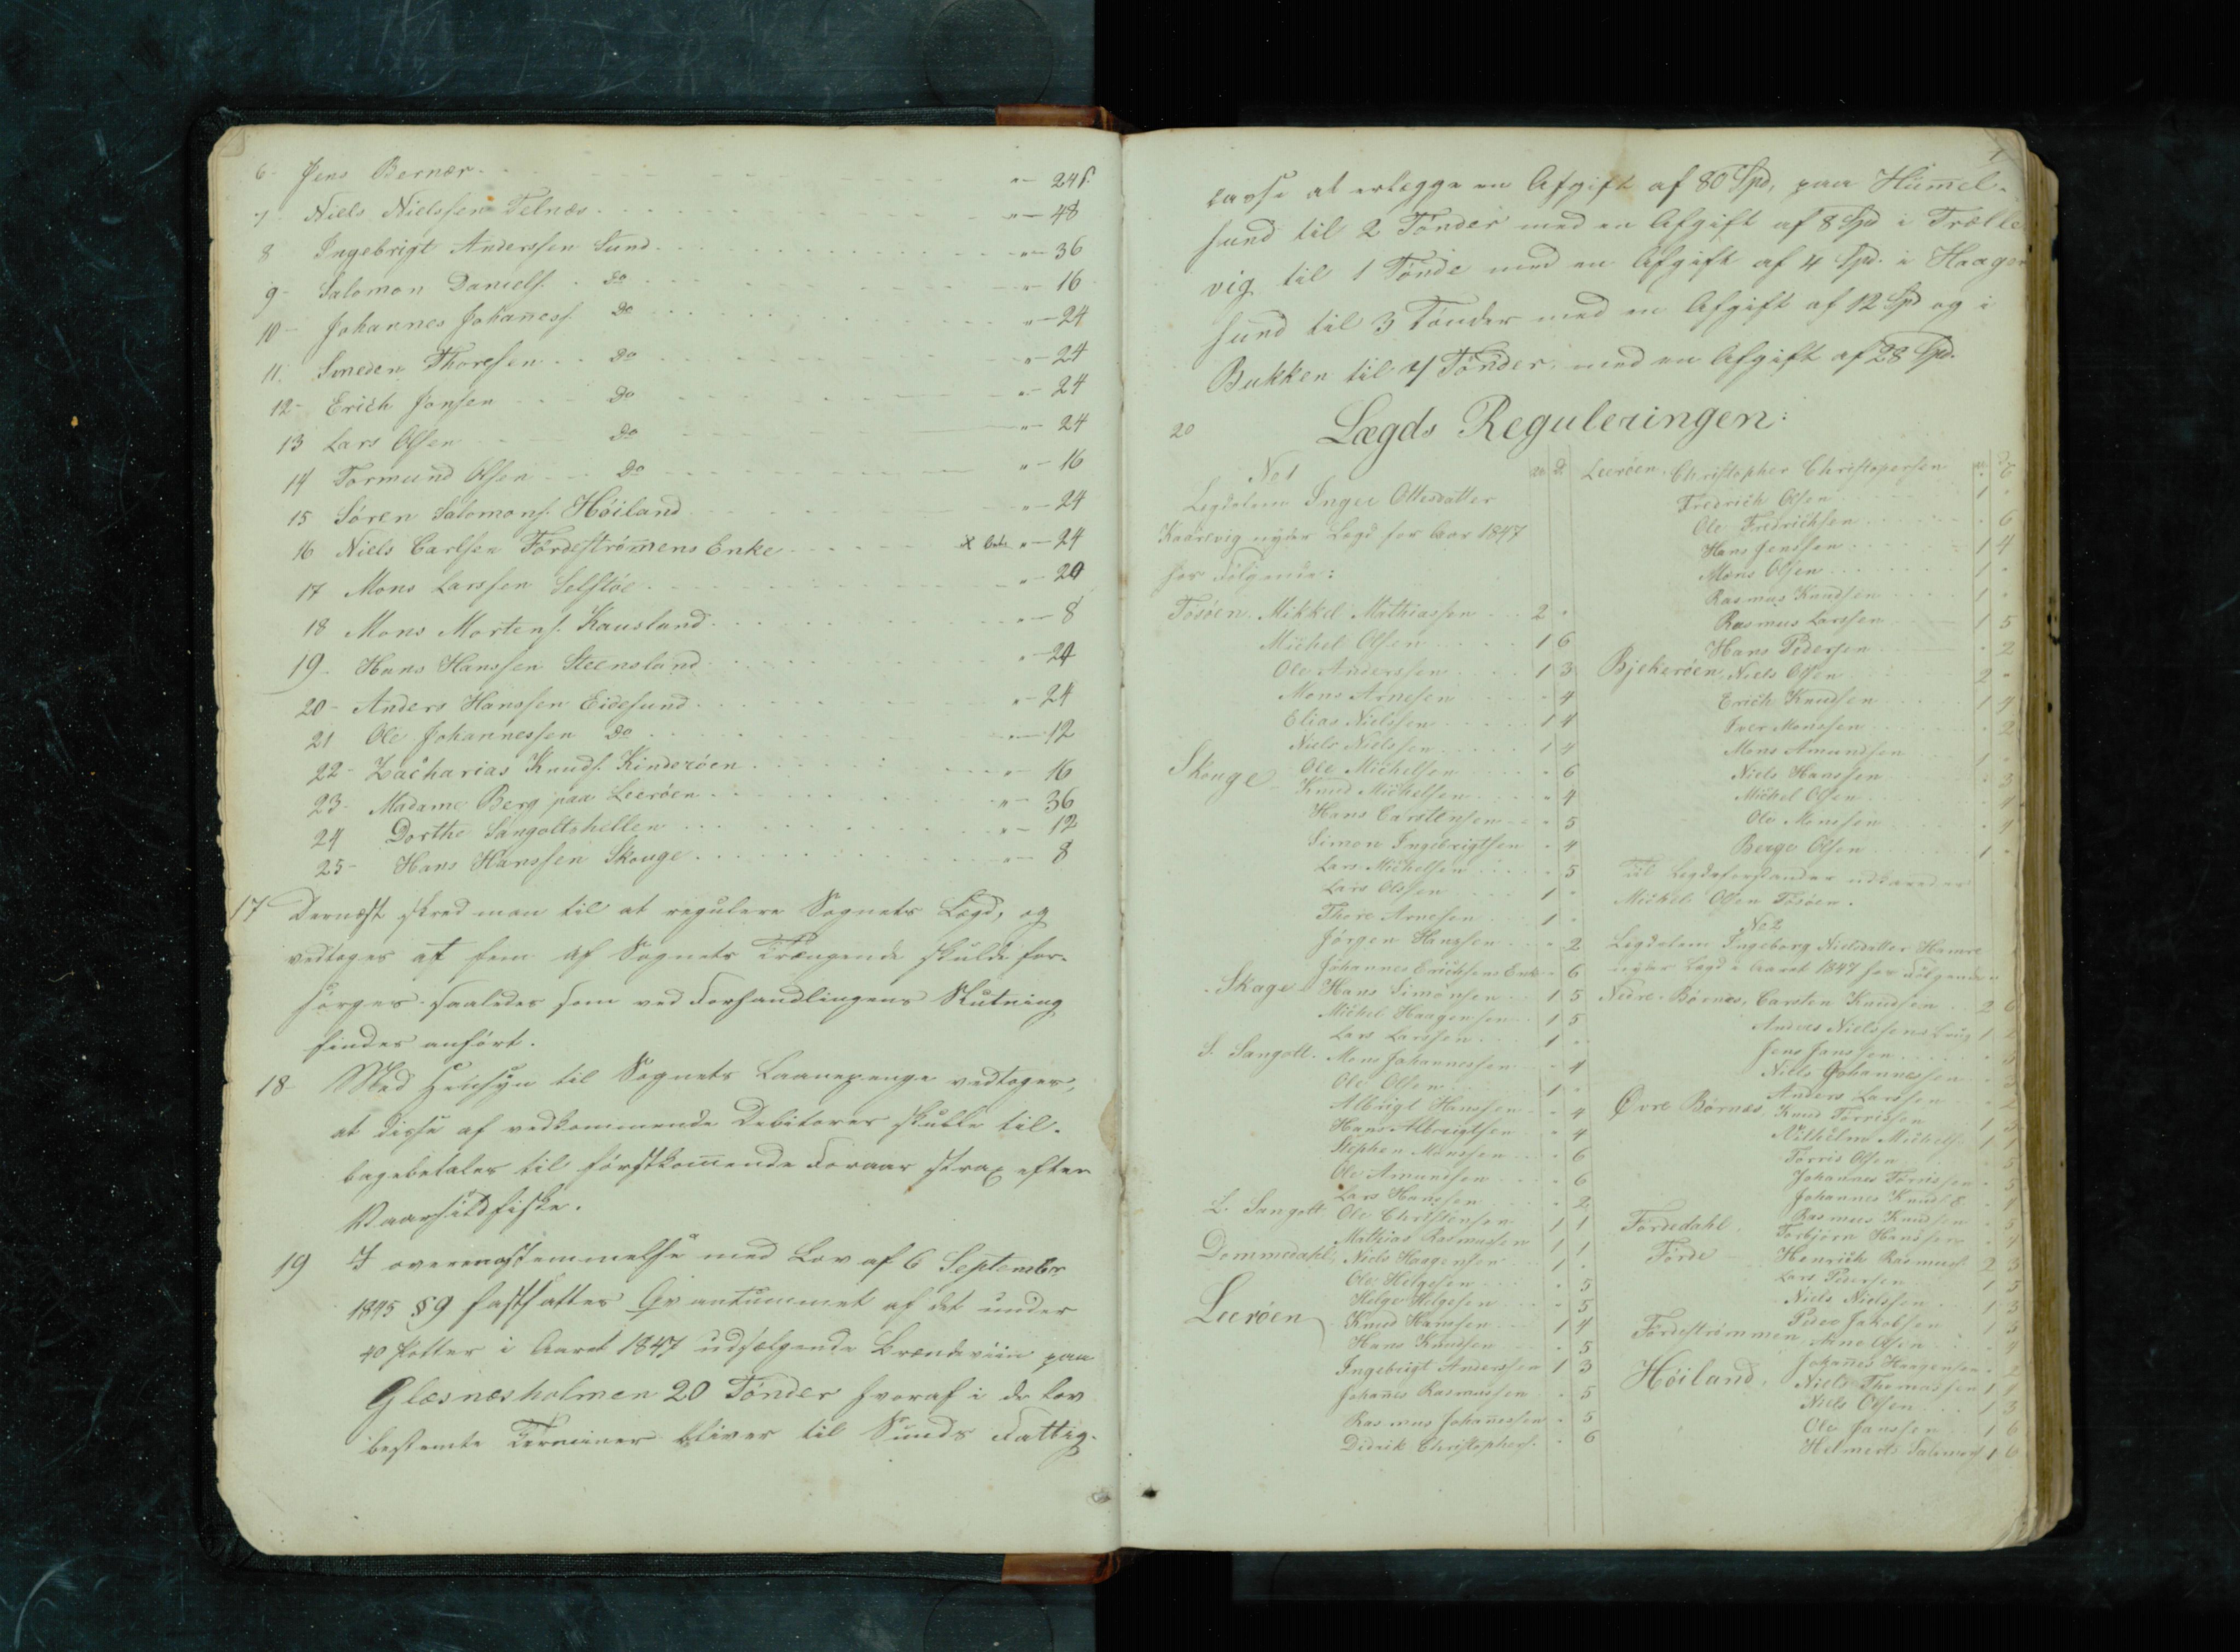 6- Jens Bernær - " - 24 s.
7 Niels Nielssen Telnæs - " - 48
8 Ingebrigt Anderssen Sund - " - 36
9- Salomon Daniels. do - " - 16
10- Johannes Johaness. do - " - 24
11. Smeden Thoresen do - " - 24
12- Erich Jonsen do - " - 24
13 Lars Olsen do - " - 24
14 Tormund Olsen do - " - 16
15 Søren Salomons. Høiland - " - 24
16 Niels Carlsen Førdestrømens Enke " - 24
17 Mons Larssen Selstøe - " - 20
18 Mons Mortens. Kausland - " - 8
19- Hans Hanssen Steensland - " - 24
20- Anders Hanssen Eidesund - " - 24
21 Ole Johannessen do - " - 12
22- Zacharias Knuds. Kinderöen - " - 16
23- Madame Berg paa Leeröen - " - 36
24 Dorthe Sangoltshellen - " - 12
25- Hans Hanssen Skouge - " - 8
17 Dernæst skred man til at regulere Sognets Lægd, og
vedtoges at fem af Sognets Trængende skulde for-
sørges saaledes som ved Forhandlingens Slutning
findes anført.
18- Med Hensyn til Sognets Laanepenge vedtoges,
at disse af vedkommende Debitorer skulle til-
bagebetales til förstkomende Foraar strax efter
Vaarsildfiske.
19 I overensstemmelse med Lov af 6 September
1845 § 9 fastsattes Qvantummet af det under
40 Potter i Aaret 1847 udsælgende Brændeviin paa
Glæsnæsholmen 20 Tønder hvoraf i de lov
bestemte Terminer bliver til Sunds Fattig-
casse at erlægge en Afgift af 80 Spd, paa Hümel-
sund til 2 Tønder med en Afgift af 8 Spd i Trælle
vig til 1 Tønde med en Afgift af 4 Spd. i Haagen
sund til 3 Tønder med en Afgift af 12 Spd og i
Bukken til 7 Tønder, med en Afgift af 28 Spd.
20 Lægds Reguleringen:
No 1
Legdslem Inger Ottesdatter
Kaarevig nyder Legd for Aar 1847
hos Følgende:
Tosöen Mikkel Mathiassen 2 "
Michel Olsen 1 6
Ole Anderssen 1 3
Mons Arnesen " 4
Elias Nielssen 1 4
Niels Nielssen 1 4
Skouge Ole Michelsen " 6
Knud Michelsen " 4
Hans Carstensen " 5
Simon Ingebrigtsen " 4
Lars Michelsen " 5
Lars Olssen 1 "
Thore Arnesen 1 "
Jörgen Hanssen " 2
Johannes Erichsens Enke " 6
Skage Hans Simonsen 1 5
Michel Haagensen 1 5
Lars Larssen 1 "
S. Sangolt. Mons Johannessen " 4
Ole Olsen 1 "
Albrigt Hanssen " 4
Hans Albrigtsen " 4
Stephen Monssen " 6
Ole Amundsen " 6
Lars Hanssen " 2
L. Sangolt Ole Christensen 1 1
Mathias Rasmussen 1 1
Dommedahl, Niels Haagensen 1 "
Ole Helgesen " 5
Helge Helgesen " 5
Leeröen Knud Hanssen 1 4
Hans Knudsen " 5
Ingebrigt Anderssen 1 3
Johanes Rasmussen " 5
Rasmus Johannessen " 5
Didrik Christophers. " 6
Leeröen. Christopher Christophersen
Fredrich Olsen 1 "
Ole Fredrichsen " 6
Hans Jenssen 1 4
Mons Olsen 1 "
Rasmus Knudsen 1 "
Rasmus Larssen 1 5
Hans Pedersen " 2
Bjelkeröen Niels Olsen 2 "
Erich Knudsen 1 4
Iver Monssen " 2
Mons Amundsen 1 "
Niels Hanssen " 3
Michel Olsen " 4
Ole Monssen " 4
Berge Olsen 1 "
Til Legdsforstander udnævnes
Michel Olsen Tosöen.
No 2
Legdslem Ingeborg Nielsdatter Hamre
nyder Legd i Aaret 1847 hos følgende
Nedre Børnes, Carsten Knudsen 2 6
Anders Nielssens 1
Jens Janssen
Niels Johannessen
Anders Larssen
Øvre Børnæs Knud Torrissen
Vilhelm Michels. 1 1
Torris Olsen
Johannes Torrissen
Johannes Knuds.
Rasmus Knudsen
Førdedahl Torbjørn Hanssen
Førde Henrich Rasmuss. 2 3
Lars Pedersen 1 3
Niels Nielssen 1 3
Peder Jakobsen 1 3
Førdestrømmen Arne Olsen
Johanes Haagensen
Høiland. Niels Thomassen 1
Niels Olsen 1 3
Ole Janssen 1 6
Helmerts Salomons. 1 6